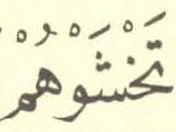 تَخْشَوْهُمْ